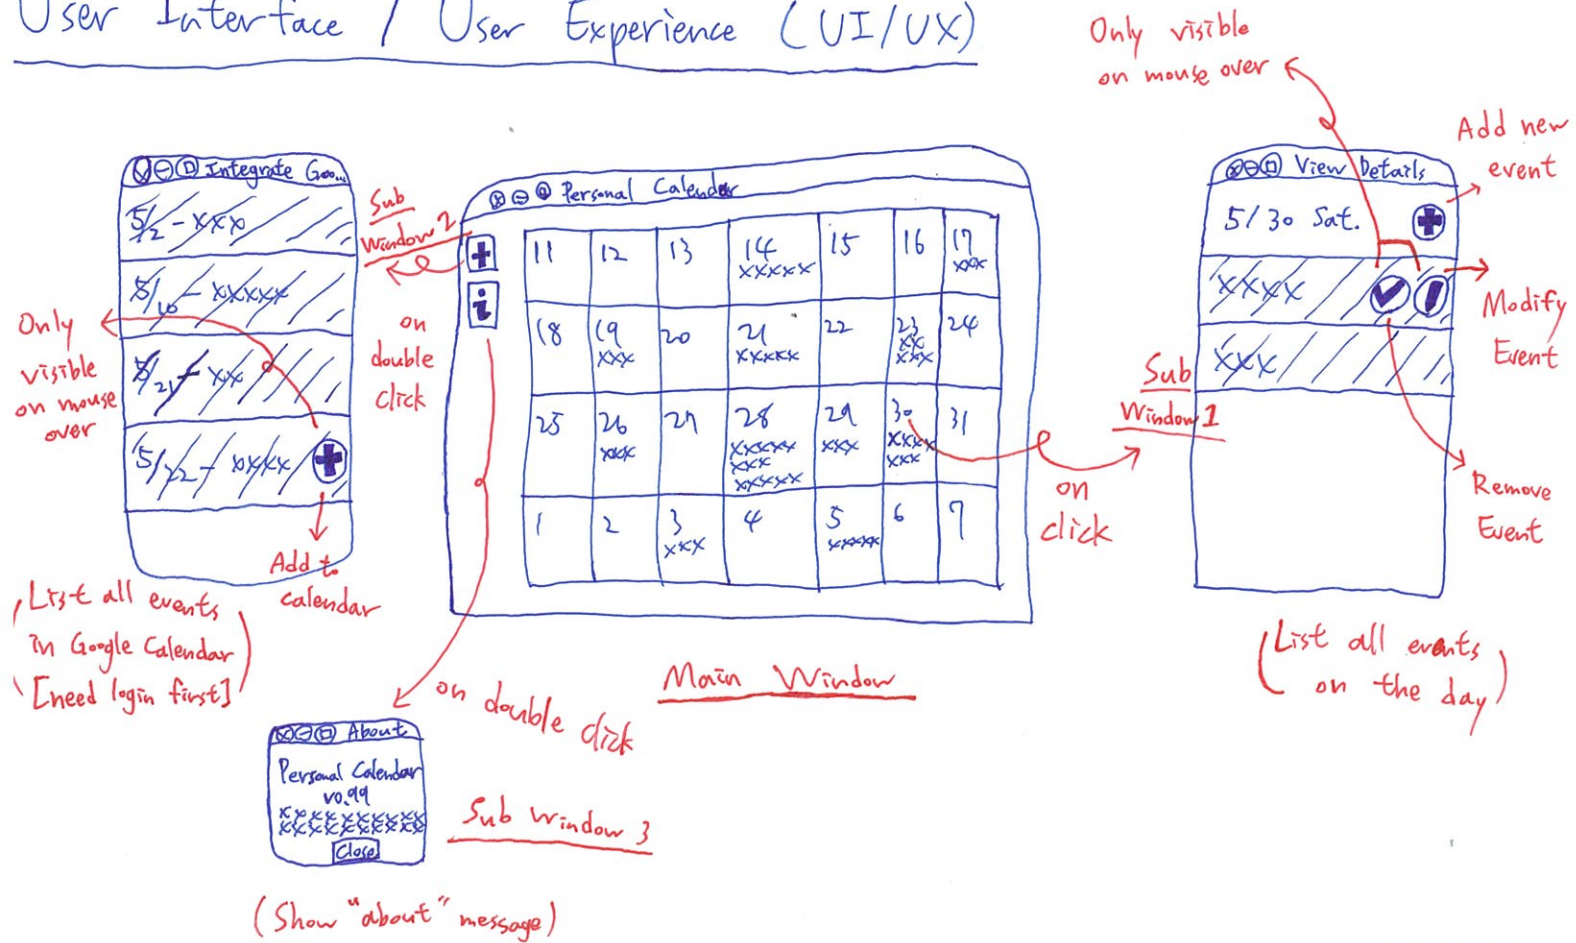 User Interface / User Experience (UI/UX)
Only visible
on mouse over
Add new
event
Integrate Goo...
5/2 - xxx
5/10 - xxxxx
5/21 - xx
5/22 - xxxx
Only
visible
on mouse
over
Add to
calendar
(List all events
in Google Calendar
[need login first])
Sub
Window 2
on
double
click
Personal Calendar
+
i
11 12 13 14 15 16 17
xxxxx xxx
18 19 20 21 22 23 24
xxx xxxxx xx
xxx
25 26 27 28 29 30 31
xxx xxxxx xxx xxxx
xxx xxx
xxxxx
1 2 3 4 5 6 7
xxx xxxxx
Main Window
on
click
Sub
Window 1
View Details
5/30 Sat.
xxxx
xxx
Modify
Event
Remove
Event
(List all events
on the day)
on double click
About
Personal Calendar
v0.99
xxxxxxxxxx
xxxxxxxxxx
Close
Sub window 3
(Show "about" message)